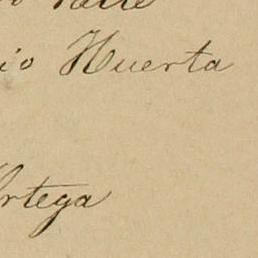 Valle
io Huerta
Ortega